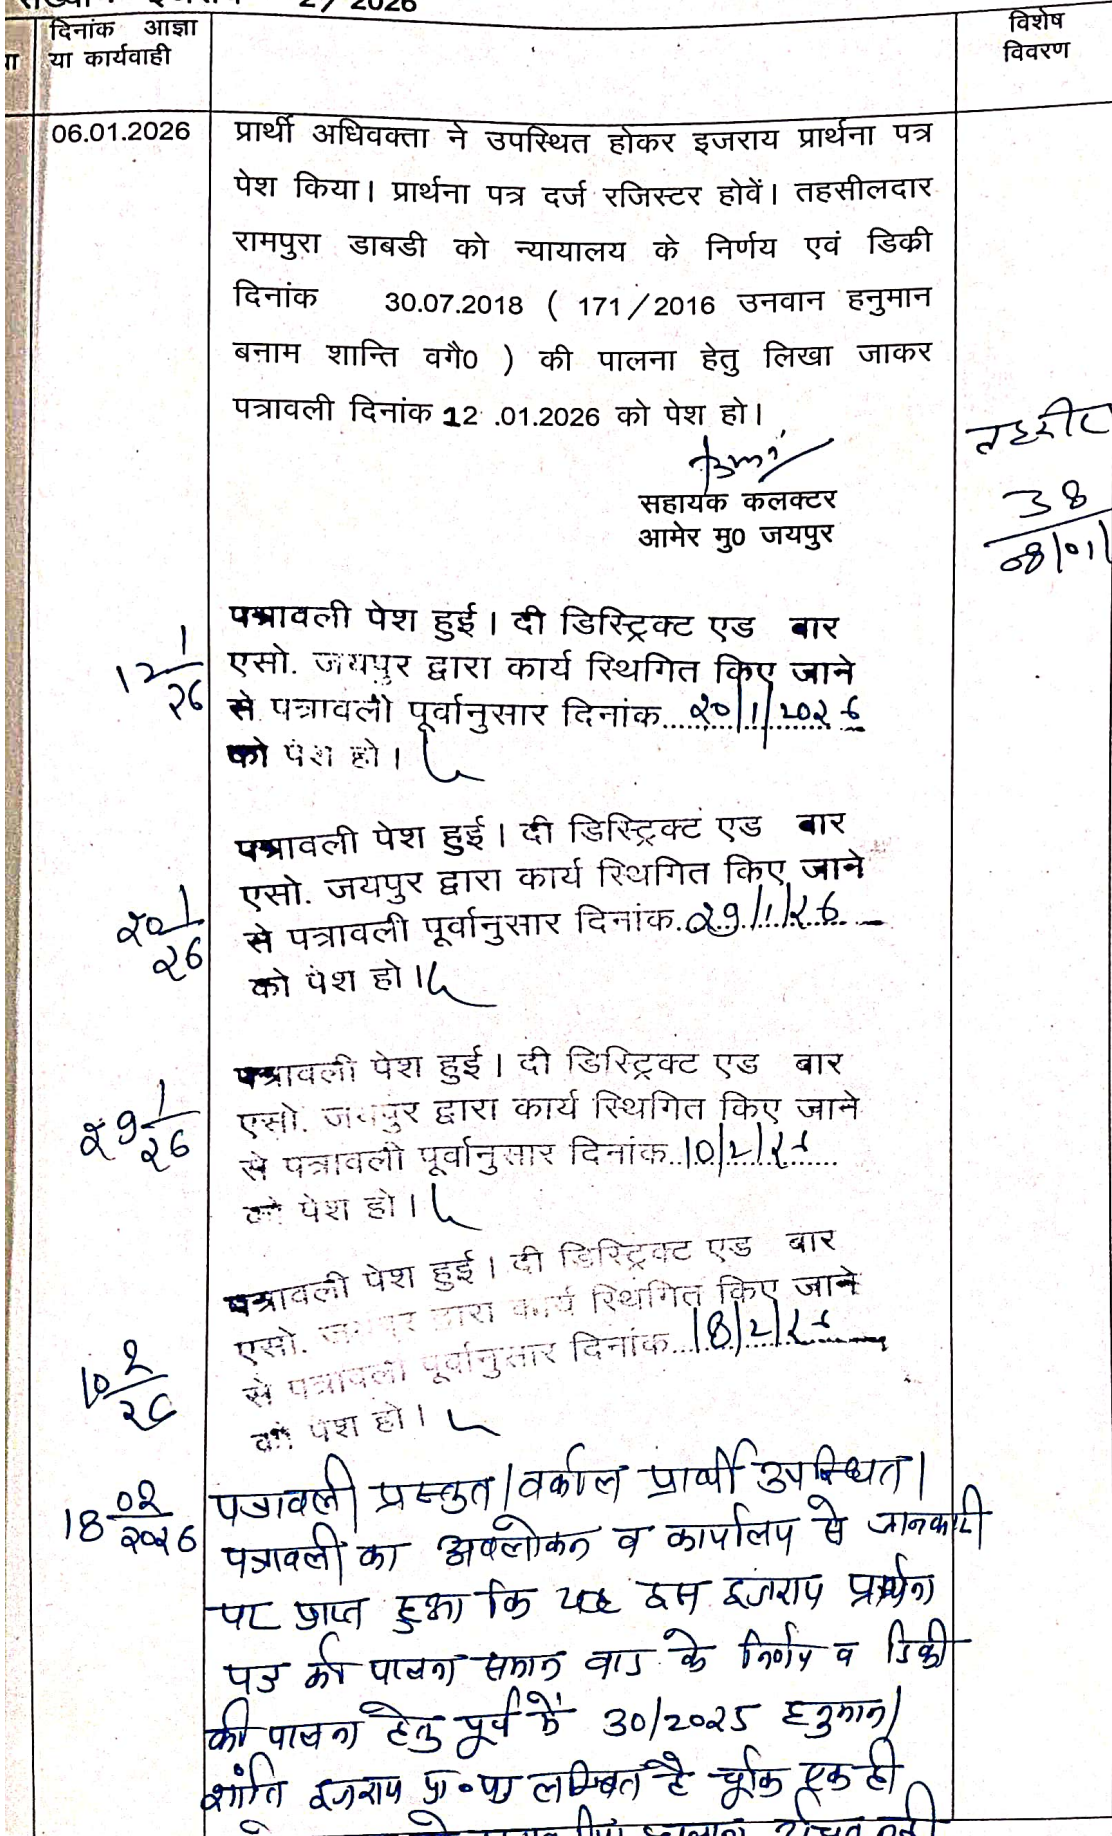 2/2026
दिनांक आज्ञा
या कार्यवाही
विशेष
विवरण
06.01.2026
प्रार्थी अधिवक्ता ने उपस्थित होकर इजराय प्रार्थना पत्र
पेश किया। प्रार्थना पत्र दर्ज रजिस्टर होवें। तहसीलदार
रामपुरा डाबडी को न्यायालय के निर्णय एवं डिकी
दिनांक 30.07.2018 ( 171/2016 उनवान हनुमान
बनाम शान्ति वगै0 ) की पालना हेतु लिखा जाकर
पत्रावली दिनांक 12 .01.2026 को पेश हो।
सहायक कलक्टर
आमेर मु0 जयपुर
38
08/01
12 1/26
पत्रावली पेश हुई। दी डिस्ट्रिक्ट एड बार
एसो. जयपुर द्वारा कार्य स्थिगित किए जाने
से पत्रावली पूर्वानुसार दिनांक...20/1/2026
को पेश हो।
20 1/26
पत्रावली पेश हुई। दी डिस्ट्रिक्ट एड बार
एसो. जयपुर द्वारा कार्य स्थिगित किए जाने
से पत्रावली पूर्वानुसार दिनांक.29/1/26
को पेश हो।
29 1/26
पत्रावली पेश हुई। दी डिस्ट्रिक्ट एड बार
एसो. जयपुर द्वारा कार्य स्थिगित किए जाने
से पत्रावली पूर्वानुसार दिनांक...10/2/26
को पेश हो।
10 2/26
पत्रावली पेश हुई। दी डिस्ट्रिक्ट एड बार
एसो. जयपुर द्वारा कार्य स्थिगित किए जाने
से पत्रावली पूर्वानुसार दिनांक...18/2/26
को पेश हो।
18 02/2026
पत्रावली प्रस्तुत। वकील प्रार्थी उपस्थित।
पत्रावली का अवलोकन व कार्यालय से जानकारी
पर प्राप्त हुआ कि यह इस इजराय प्रार्थना
पत्र की पालना समान वाद के निर्णय व डिकी
की पालना हेतु पूर्व में 30/2025 हनुमान/
शांति इजराय प्रा०पत्र लम्बित है चूंकि एक ही